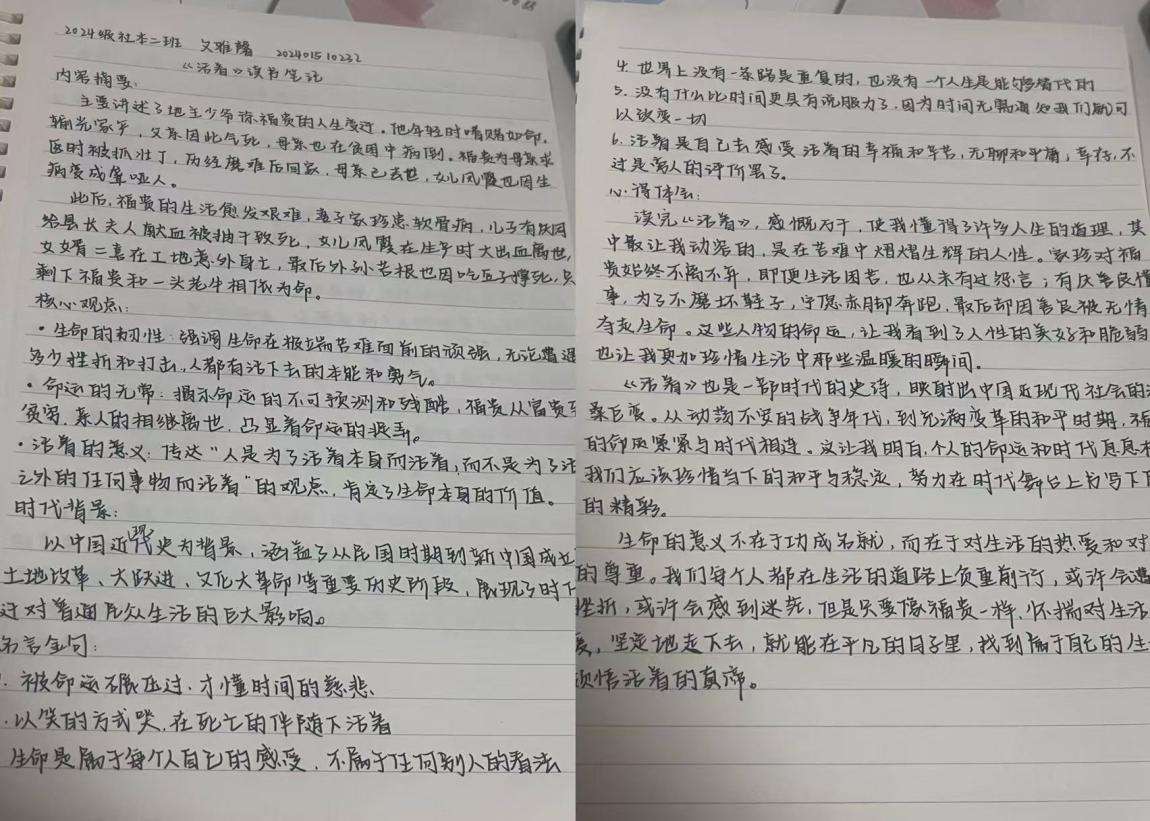 2024级社本二班 文雅馨 20240151 0232
《活着》读书笔记
内容摘要:
主要讲述了地主少爷徐福贵的人生变迁。他年轻时嗜赌如命,
输光家产,父亲因此气死,母亲也在贫困中病倒。福贵为母亲求
医时被抓壮丁,历经磨难后回家,母亲已去世,女儿凤霞也因生
病变成聋哑人。
此后,福贵的生活愈发艰难,妻子家珍患软骨病,儿子有庆因
给县长夫人献血被抽干致死,女儿凤霞在生产时大出血离世,
女婿二喜在工地意外身亡,最后外孙苦根也因吃豆子撑死,只
剩下福贵和一头老牛相依为命。
核心观点:
·生命的韧性:强调生命在极端苦难面前的顽强,无论遭遇
多少挫折和打击,人都有活下去的本能和勇气。
·命运的无常:揭示命运的不可预测和残酷,福贵从富贵到
贫穷,亲人的相继离世,凸显着命运的捉弄。
·活着的意义:传达“人是为了活着本身而活着,而不是为了活
之外的任何事物而活着”的观点,肯定了生命本身的价值。
时代背景:
以中国近现代史为背景,涵盖了从民国时期到新中国成立
土地改革、大跃进、文化大革命等重要历史阶段,展现了时代
迁对普通民众生活的巨大影响。
名言金句:
被命运碾压过,才懂时间的慈悲、
以笑的方式哭,在死亡的伴随下活着
生命是属于每个人自己的感受,不属于任何别人的看法
4. 世界上没有一条路是重复的,也没有一个人生是能够替代的
5. 没有什么比时间更具有说服力了,因为时间无需通知我们就可
以改变一切
6. 活着是自己去感受活着的幸福和辛苦,无聊和平庸,幸存,不
过是旁人的评价罢了。
心得体会:
读完《活着》,感慨万千,使我懂得了许多人生的道理,其
中最让我动容的,是在苦难中熠熠生辉的人性。家珍对福
贵始终不离不弃,即便生活困苦,也从未有过怨言;有庆善良懂
事,为了不磨坏鞋子,宁愿赤脚奔跑,最后却因善良被无情
夺走生命。这些人物的命运,让我看到了人性的美好和脆弱
也让我更加珍惜生活中那些温暖的瞬间。
《活着》也是一部时代的史诗,映射出中国近现代社会的
桑巨变。从动荡不安的战争年代,到充满变革的和平时期,福
的命运紧紧与时代相连。这让我明白,个人的命运和时代息息
我们应该珍惜当下的和平与稳定,努力在时代舞台上书写下
的精彩。
生命的意义不在于功成名就,而在于对生活的热爱和对
的尊重。我们每个人都在生活的道路上负重前行,或许会遭
挫折,或许会感到迷茫,但是只要像福贵一样,怀揣对生活
爱,坚定地走下去,就能在平凡的日子里,找到属于自己的生
领悟活着的真谛。